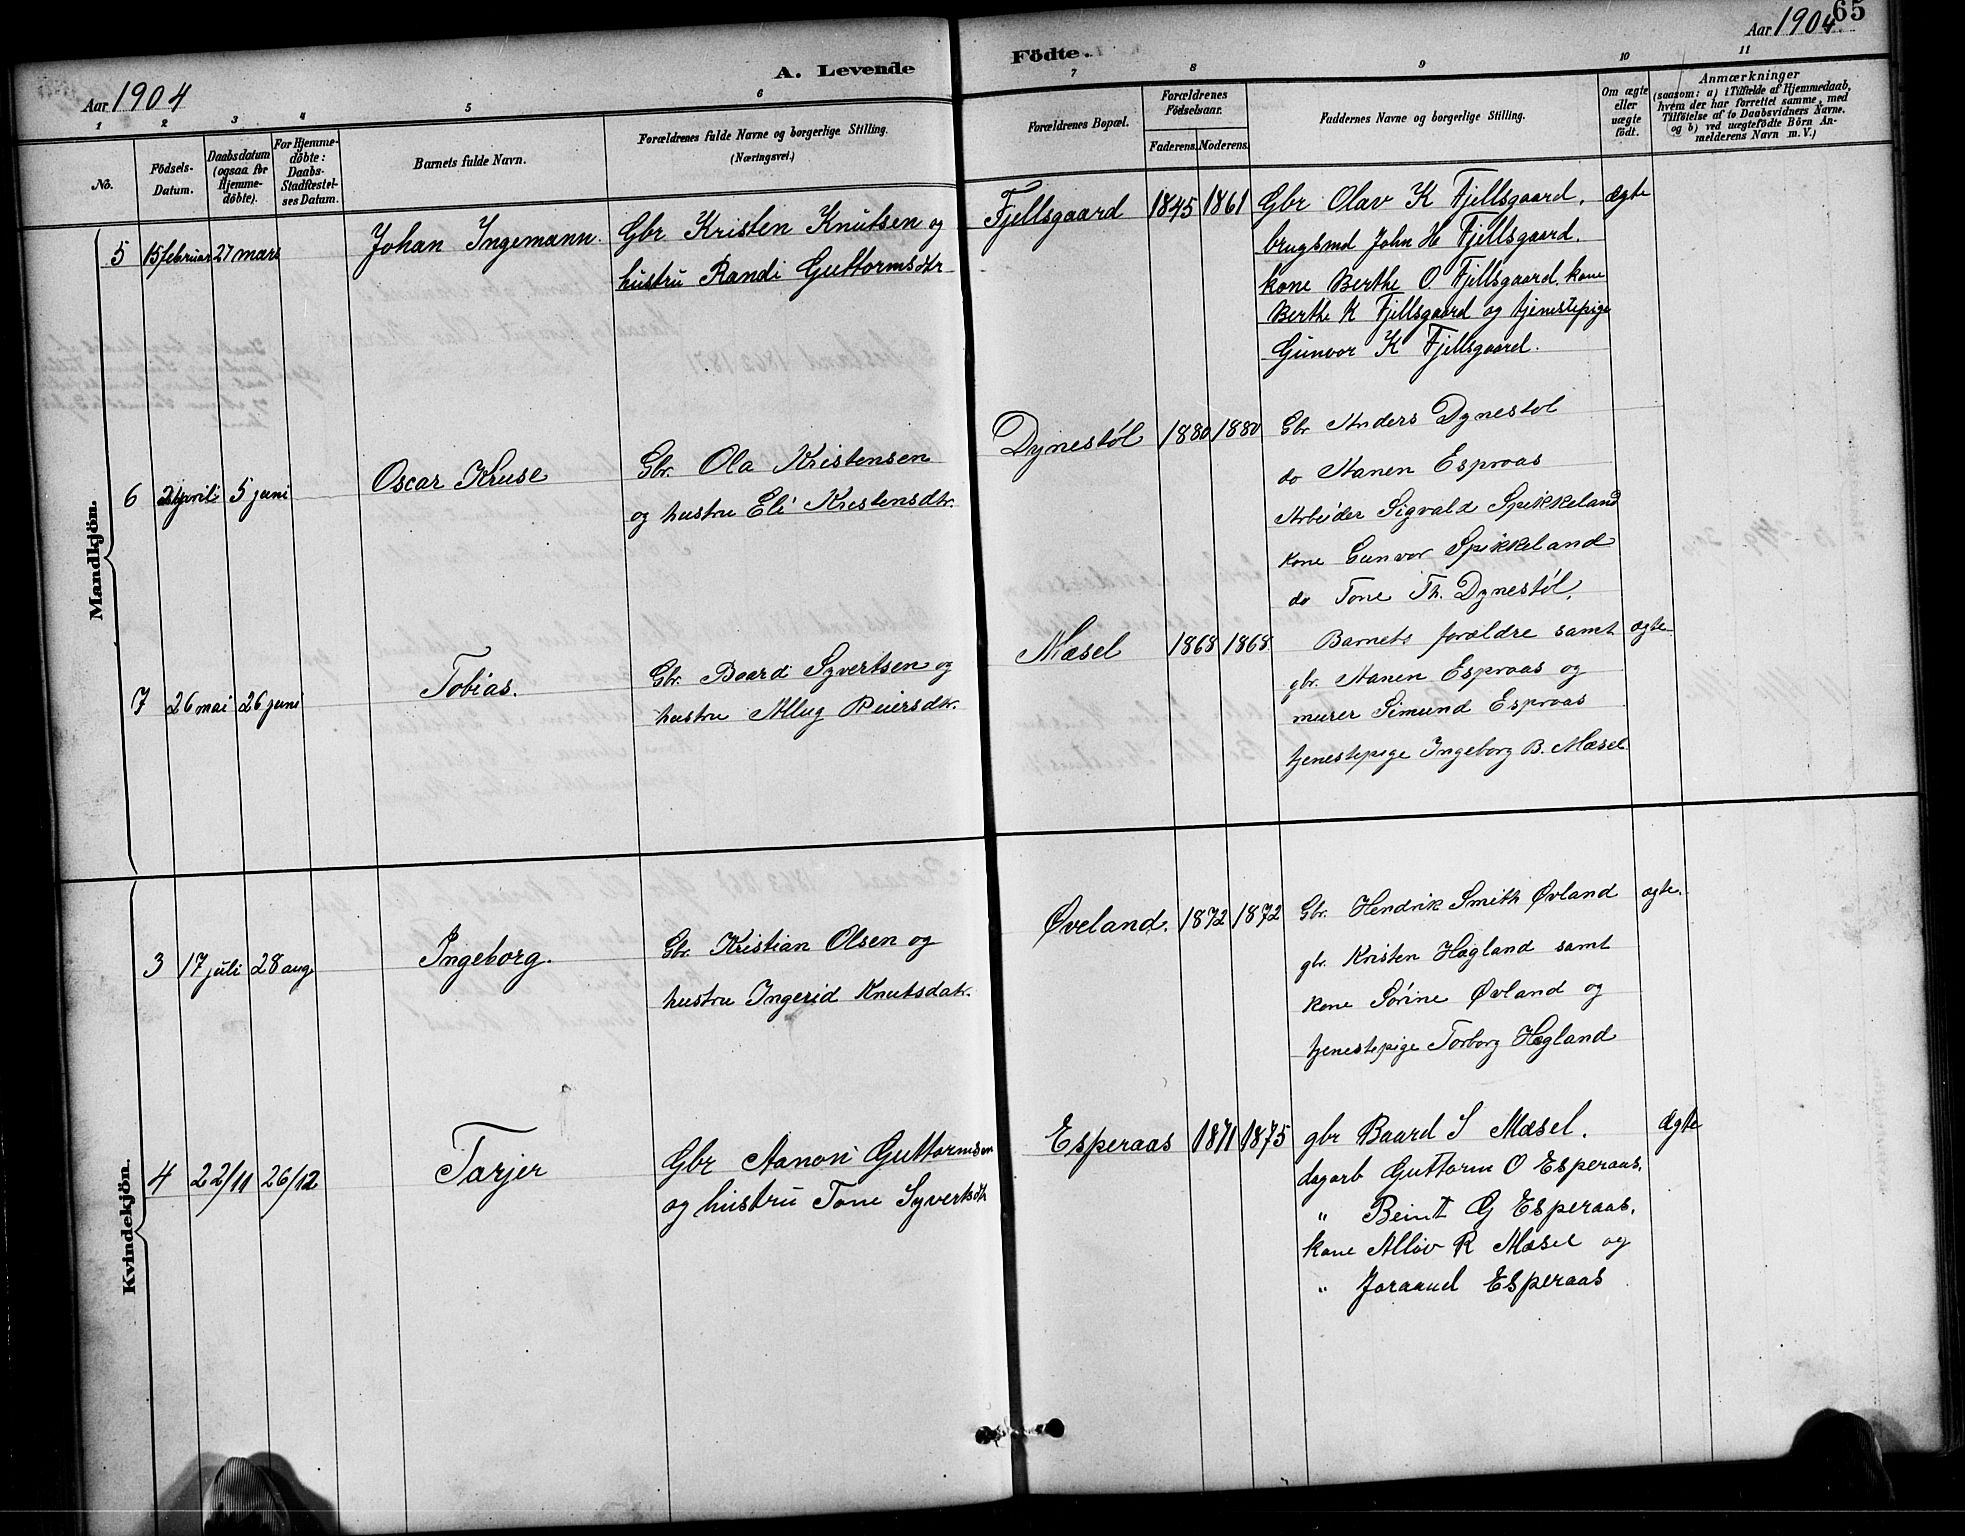 65
Aar 1904
A. Levende
Födte.
Aar 1904.
1 2 3 4 5 6 7 8 9 10 11
No.
Födsels-
Datum.
Daabsdatum
(ogsaa for
Hjemme-
döbte).
For Hjemme-
döbte:
Daabs-
Stadfæstel-
ses Datum.
Barnets fulde Navn.
Forældrenes fulde Navne og borgerlige Stilling.
(Næringsvei.)
Forældrenes Bopæl.
Forældrenes
Födselsaar.
Faderens. Moderens.
Faddernes Navne og borgerlige Stilling.
Om ægte
eller
uægte
födt.
Anmærkninger
(saasom: a) i Tilfælde af Hjemmedaab,
hvem der har forrettet samme, med
Tilföielse af to Daabsvidners Navne.
og b) ved uægtefödte Börn An-
melderens Navn m. V.)
Mandkjön.
5 15 februar 27 mars Johan Ingemann. Gbr Kristen Knutsen og
hustru Randi Guttormsdtr
Fjellsgaard 1845 1861 Gbr Olav K Fjellsgaard. ægte
brugsmd John H Fjellsgaard.
kone Berthe O. Fjellsgaard. kone
Berthe K Fjellsgaard og tjenestepige
Gunvor K Fjellsgaard.
6 april 5 juni Oscar Kruse Gbr. Ola Kristensen
og hustru Eli Kristensdtr.
Dynestøl 1880 1880 Gbr Anders Dynestøl
do Aanen Espraas
Arbeider Sigvald Spikkeland
kone Gunvor Spikkeland
do Tone Th. Dynestøl.
7 26 mai 26 juni Tobias. Gbr. Baard Syvertsen og
hustru Allug Reiersdtr.
Mæsel 1868 1868 Barnets forældre samt ægte
gbr. Aanen Espraas og
murer Simund Espraas
tjenestepige Ingeborg B. Mæsel.
Kvindekjön.
3 17 juli 28 aug Ingeborg. Gbr. Kristian Olsen og
hustru Ingerid Knutsdatr.
Øveland. 1872 1872 Gbr. Hendrik Smith Øvland ægte.
gbr. Kristen Hægland samt
kone Sørine Øvland og
tjenestepige Torborg Hægland
4 22/11 26/12 Tarjer Gbr Aanon Guttormsen
og hustru Tone Syvertsdtr
Esperaas 1871 1875 gbr Baard S Mæsel. ægte
dagarb Guttorm O Esperaas.
" Beint G Esperaas.
kone Alløv R Mæsel og
" Joraand Esperaas